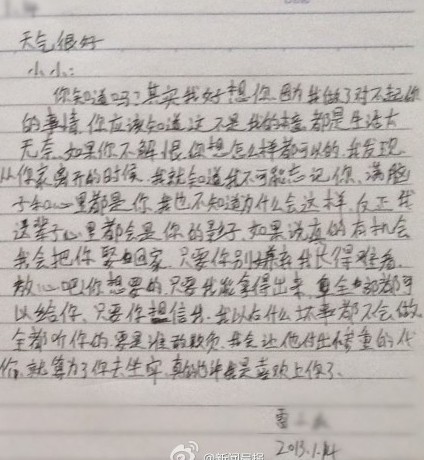 天气很好
小小:
你知道吗?其实我好想你.因为我做了对不起你
的事情.你应该知道这不是我的错.都是生活太
无奈.如果你不解恨.你想怎么样都可以的.我发现
从你家离开的时候.我就知道我不可能忘记你.满脑
子和心里都是你.我也不知道为什么会这样.反正我
这辈子心里都会是你的影子.如果说真的有机会
我会把你娶回家.只要你别嫌弃我长得难看.
放心吧!你想要的只要我能拿得出来.全部都可
以给你.只要你想信我.我以后什么坏事都不会做.
全都听你的.要是谁敢欺负.我会让他付出惨重的代
价.就算为了你去坐牢.真的喜欢上你了.
2013.1.14
@新闻晨报